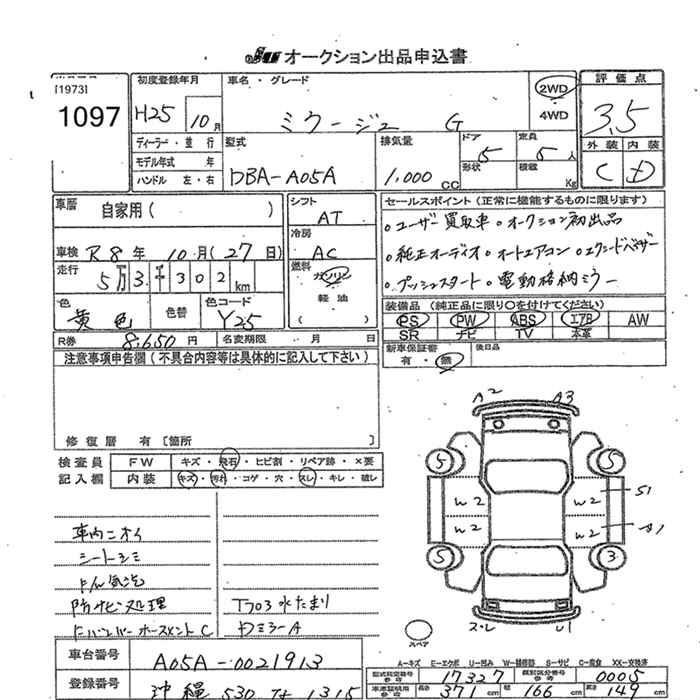 JU オークション出品申込書
[1973]
1097
初度登録年月
H25 10月
車名・グレード
ミラージュ G
2WD
4WD
評価点
3.5
外装 内装
C D
ディーラー・並行
モデル年式 年
ハンドル 左・右
型式
DBA-A05A
排気量
1.000 CC
ドア 5
形状
定員 5人
積載 Kg
車歴 自家用( )
シフト AT
セールスポイント(正常に機能するものに限ります)
。ユーザー買取車。オークション初出品
。純正オーディオ。オートエアコン。
。プッシュスタート。電動格納ミラー
車検 R8年 10月(27日)
冷房 AC
走行 5万3千302km
燃料 ガソリン
軽油
( )
色 黄色
色替
色コード Y25
装備品(純正品に限り○を付けてください)
PS PW ABS エアB AW
SR ナビ TV 本革
R券 8,650円 名変期限 月 日
新車保証書 後日品
有・無
注意事項申告欄(不具合内容等は具体的に記入して下さい)
修復歴 有[箇所 ]
検査員 FW キズ・飛石・ヒビ割・リペア跡・×要
記入欄 内装 キズ・汚れ・コゲ・穴・スレ・キレ・破レ
A2 A3
5 5
W2 W2 S1
W2 W2
5 3
スレ U1
スペア
車内ニオイ
シートシミ
防サビ処理
水たまり
ドミラーA
A-キズ E-エクボ U-凹み W-補修跡 S-サビ C-腐食 XX-交換済
車台番号 A05A-0021913
型式指定番号 17327 類別区分番号 0005
登録番号 沖縄 530 1315
長さ 371cm 幅 166cm 高さ 149cm